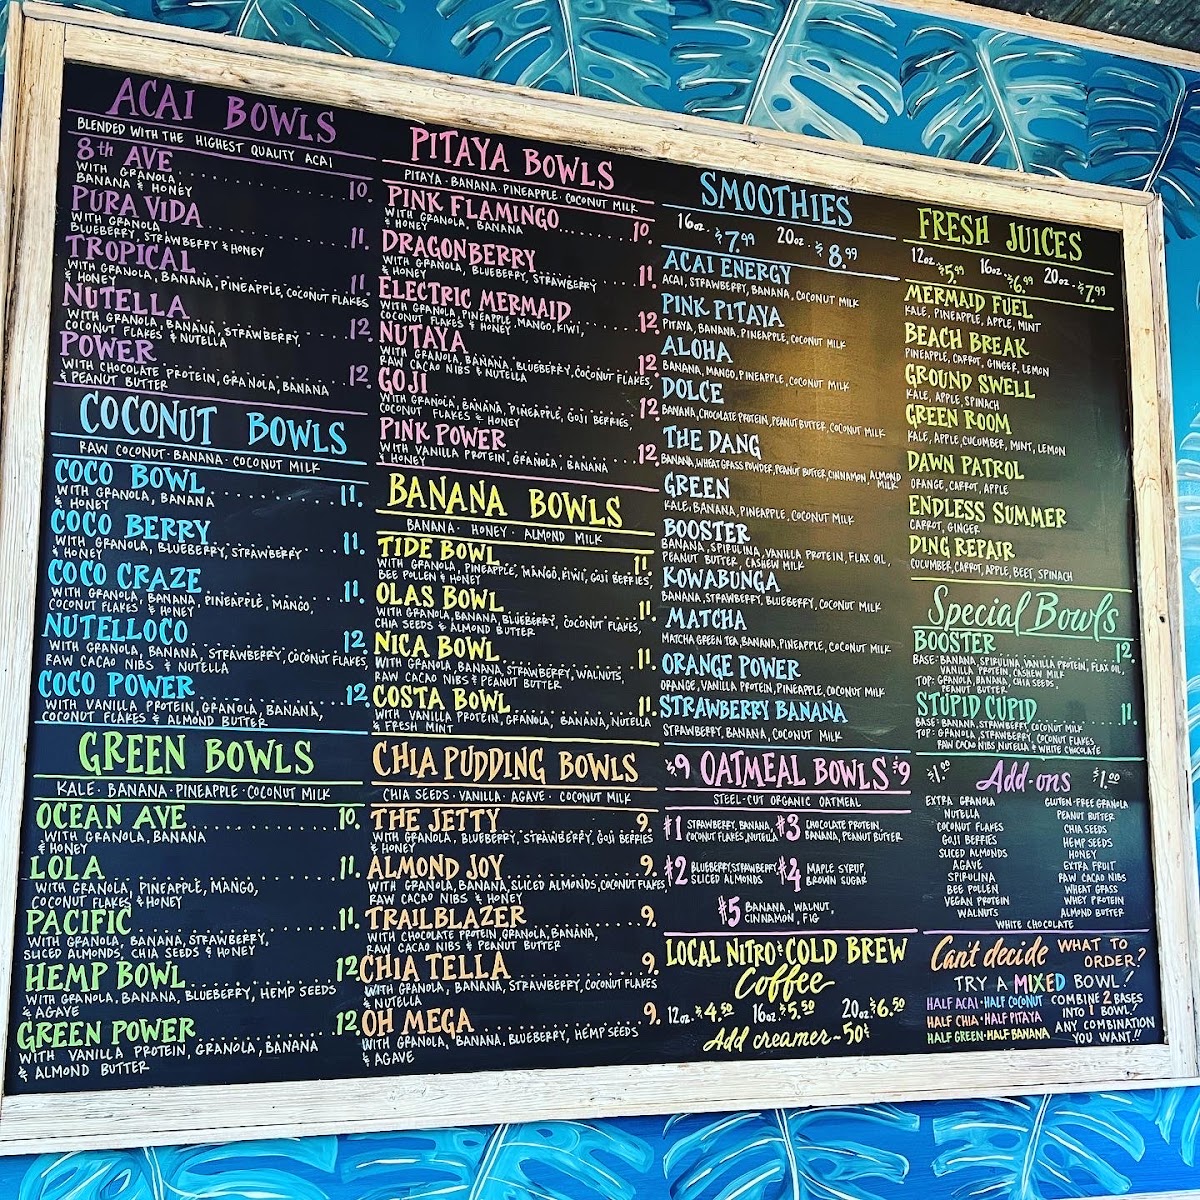 ACAI BOWLS
BLENDED WITH THE HIGHEST QUALITY ACAI
8th AVE
WITH GRANOLA, 10.
BANANA & HONEY
PURA VIDA
WITH GRANOLA, 11.
BLUEBERRY, STRAWBERRY & HONEY
TROPICAL 11.
WITH GRANOLA, BANANA, PINEAPPLE, COCONUT FLAKES
& HONEY
NUTELLA 12.
WITH GRANOLA, BANANA, STRAWBERRY,
COCONUT FLAKES & NUTELLA
POWER 12.
WITH CHOCOLATE PROTEIN, GRANOLA, BANANA
& PEANUT BUTTER
COCONUT BOWLS
RAW COCONUT · BANANA · COCONUT MILK
COCO BOWL 11.
WITH GRANOLA, BANANA
& HONEY
COCO BERRY 11.
WITH GRANOLA, BLUEBERRY, STRAWBERRY
& HONEY
COCO CRAZE 11.
WITH GRANOLA, BANANA, PINEAPPLE, MANGO,
COCONUT FLAKES & HONEY
NUTELLOCO 12.
WITH GRANOLA, BANANA, STRAWBERRY, COCONUT FLAKES,
RAW CACAO NIBS & NUTELLA
COCO POWER 12.
WITH VANILLA PROTEIN, GRANOLA, BANANA,
COCONUT FLAKES & ALMOND BUTTER
GREEN BOWLS
KALE · BANANA · PINEAPPLE · COCONUT MILK
OCEAN AVE 10.
WITH GRANOLA, BANANA
& HONEY
LOLA 11.
WITH GRANOLA, PINEAPPLE, MANGO,
COCONUT FLAKES & HONEY
PACIFIC 11.
WITH GRANOLA, BANANA, STRAWBERRY,
SLICED ALMONDS, CHIA SEEDS & HONEY
HEMP BOWL 12.
WITH GRANOLA, BANANA, BLUEBERRY, HEMP SEEDS
& AGAVE
GREEN POWER 12.
WITH VANILLA PROTEIN, GRANOLA, BANANA
& ALMOND BUTTER
PITAYA BOWLS
PITAYA · BANANA · PINEAPPLE · COCONUT MILK
PINK FLAMINGO 10.
WITH GRANOLA, BANANA
& HONEY
DRAGONBERRY 11.
WITH GRANOLA, BLUEBERRY, STRAWBERRY
& HONEY
ELECTRIC MERMAID 12.
WITH GRANOLA, PINEAPPLE, MANGO, KIWI,
COCONUT FLAKES & HONEY
NUTAYA 12.
WITH GRANOLA, BANANA, BLUEBERRY, COCONUT FLAKES,
RAW CACAO NIBS & NUTELLA
GOJI 12.
WITH GRANOLA, BANANA, PINEAPPLE, GOJI BERRIES,
COCONUT FLAKES & HONEY
PINK POWER 12.
WITH VANILLA PROTEIN, GRANOLA, BANANA
& HONEY
BANANA BOWLS
BANANA · HONEY · ALMOND MILK
TIDE BOWL 11.
WITH GRANOLA, PINEAPPLE, MANGO, KIWI, GOJI BERRIES,
BEE POLLEN & HONEY
OLAS BOWL 11.
WITH GRANOLA, BANANA, BLUEBERRY, COCONUT FLAKES,
CHIA SEEDS & ALMOND BUTTER
NICA BOWL 11.
WITH GRANOLA, BANANA, STRAWBERRY, WALNUTS,
RAW CACAO NIBS & PEANUT BUTTER
COSTA BOWL 11.
WITH VANILLA PROTEIN, GRANOLA, BANANA, NUTELLA
& FRESH MINT
CHIA PUDDING BOWLS
CHIA SEEDS · VANILLA · AGAVE · COCONUT MILK
THE JETTY 9.
WITH GRANOLA, BLUEBERRY, STRAWBERRY, GOJI BERRIES
& HONEY
ALMOND JOY 9.
WITH GRANOLA, BANANA, SLICED ALMONDS, COCONUT FLAKES
RAW CACAO NIBS & HONEY
TRAILBLAZER 9.
WITH CHOCOLATE PROTEIN, GRANOLA, BANANA,
RAW CACAO NIBS & PEANUT BUTTER
CHIA TELLA 9.
WITH GRANOLA, BANANA, STRAWBERRY, COCONUT FLAKES
& NUTELLA
OH MEGA 9.
WITH GRANOLA, BANANA, BLUEBERRY, HEMP SEEDS
& AGAVE
SMOOTHIES
16oz - $7.99 20oz - $8.99
ACAI ENERGY
ACAI, STRAWBERRY, BANANA, COCONUT MILK
PINK PITAYA
PITAYA, BANANA, PINEAPPLE, COCONUT MILK
ALOHA
BANANA, MANGO, PINEAPPLE, COCONUT MILK
DOLCE
BANANA, CHOCOLATE PROTEIN, PEANUT BUTTER, COCONUT MILK
THE DANG
BANANA, WHEAT GRASS POWDER, PEANUT BUTTER, CINNAMON, ALMOND
MILK
GREEN
KALE, BANANA, PINEAPPLE, COCONUT MILK
BOOSTER
BANANA, SPIRULINA, VANILLA PROTEIN, FLAX OIL,
PEANUT BUTTER, CASHEW MILK
KOWABUNGA
BANANA, STRAWBERRY, BLUEBERRY, COCONUT MILK
MATCHA
MATCHA GREEN TEA, BANANA, PINEAPPLE, COCONUT MILK
ORANGE POWER
ORANGE, VANILLA PROTEIN, PINEAPPLE, COCONUT MILK
STRAWBERRY BANANA
STRAWBERRY, BANANA, COCONUT MILK
$9 OATMEAL BOWLS $9
STEEL-CUT ORGANIC OATMEAL
#1 STRAWBERRY, BANANA, COCONUT FLAKES, NUTELLA
#3 CHOCOLATE PROTEIN, BANANA, PEANUT BUTTER
#2 BLUEBERRY, STRAWBERRY, SLICED ALMONDS
#4 MAPLE SYRUP, BROWN SUGAR
#5 BANANA, WALNUT, CINNAMON, FIG
LOCAL NITRO & COLD BREW
Coffee
12oz - $4.50 16oz $5.50 20oz $6.50
Add creamer ~ 50¢
FRESH JUICES
12oz - $5.99 16oz - $6.99 20oz - $7.99
MERMAID FUEL
KALE, PINEAPPLE, APPLE, MINT
BEACH BREAK
PINEAPPLE, CARROT, GINGER, LEMON
GROUND SWELL
KALE, APPLE, SPINACH
GREEN ROOM
KALE, APPLE, CUCUMBER, MINT, LEMON
DAWN PATROL
ORANGE, CARROT, APPLE
ENDLESS SUMMER
CARROT, GINGER
DING REPAIR
CUCUMBER, CARROT, APPLE, BEET, SPINACH
Special Bowls
BOOSTER 12.
BASE: BANANA, SPIRULINA, VANILLA PROTEIN, FLAX OIL,
VANILLA PROTEIN, CASHEW MILK
TOP: GRANOLA, BANANA, CHIA SEEDS,
PEANUT BUTTER
STUPID CUPID 11.
BASE: BANANA, STRAWBERRY, COCONUT MILK
TOP: GRANOLA, STRAWBERRY, COCONUT FLAKES
RAW CACAO NIBS, NUTELLA & WHITE CHOCOLATE
$1.00 Add-ons $1.00
EXTRA GRANOLA
NUTELLA
COCONUT FLAKES
GOJI BERRIES
SLICED ALMONDS
AGAVE
SPIRULINA
BEE POLLEN
VEGAN PROTEIN
WALNUTS
GLUTEN-FREE GRANOLA
PEANUT BUTTER
CHIA SEEDS
HEMP SEEDS
HONEY
EXTRA FRUIT
RAW CACAO NIBS
WHEAT GRASS
WHEY PROTEIN
ALMOND BUTTER
WHITE CHOCOLATE
Can't decide WHAT TO ORDER?
TRY A MIXED BOWL!
HALF ACAI · HALF COCONUT
HALF CHIA · HALF PITAYA
HALF GREEN · HALF BANANA
COMBINE 2 BASES
INTO 1 BOWL!
ANY COMBINATION
YOU WANT!!